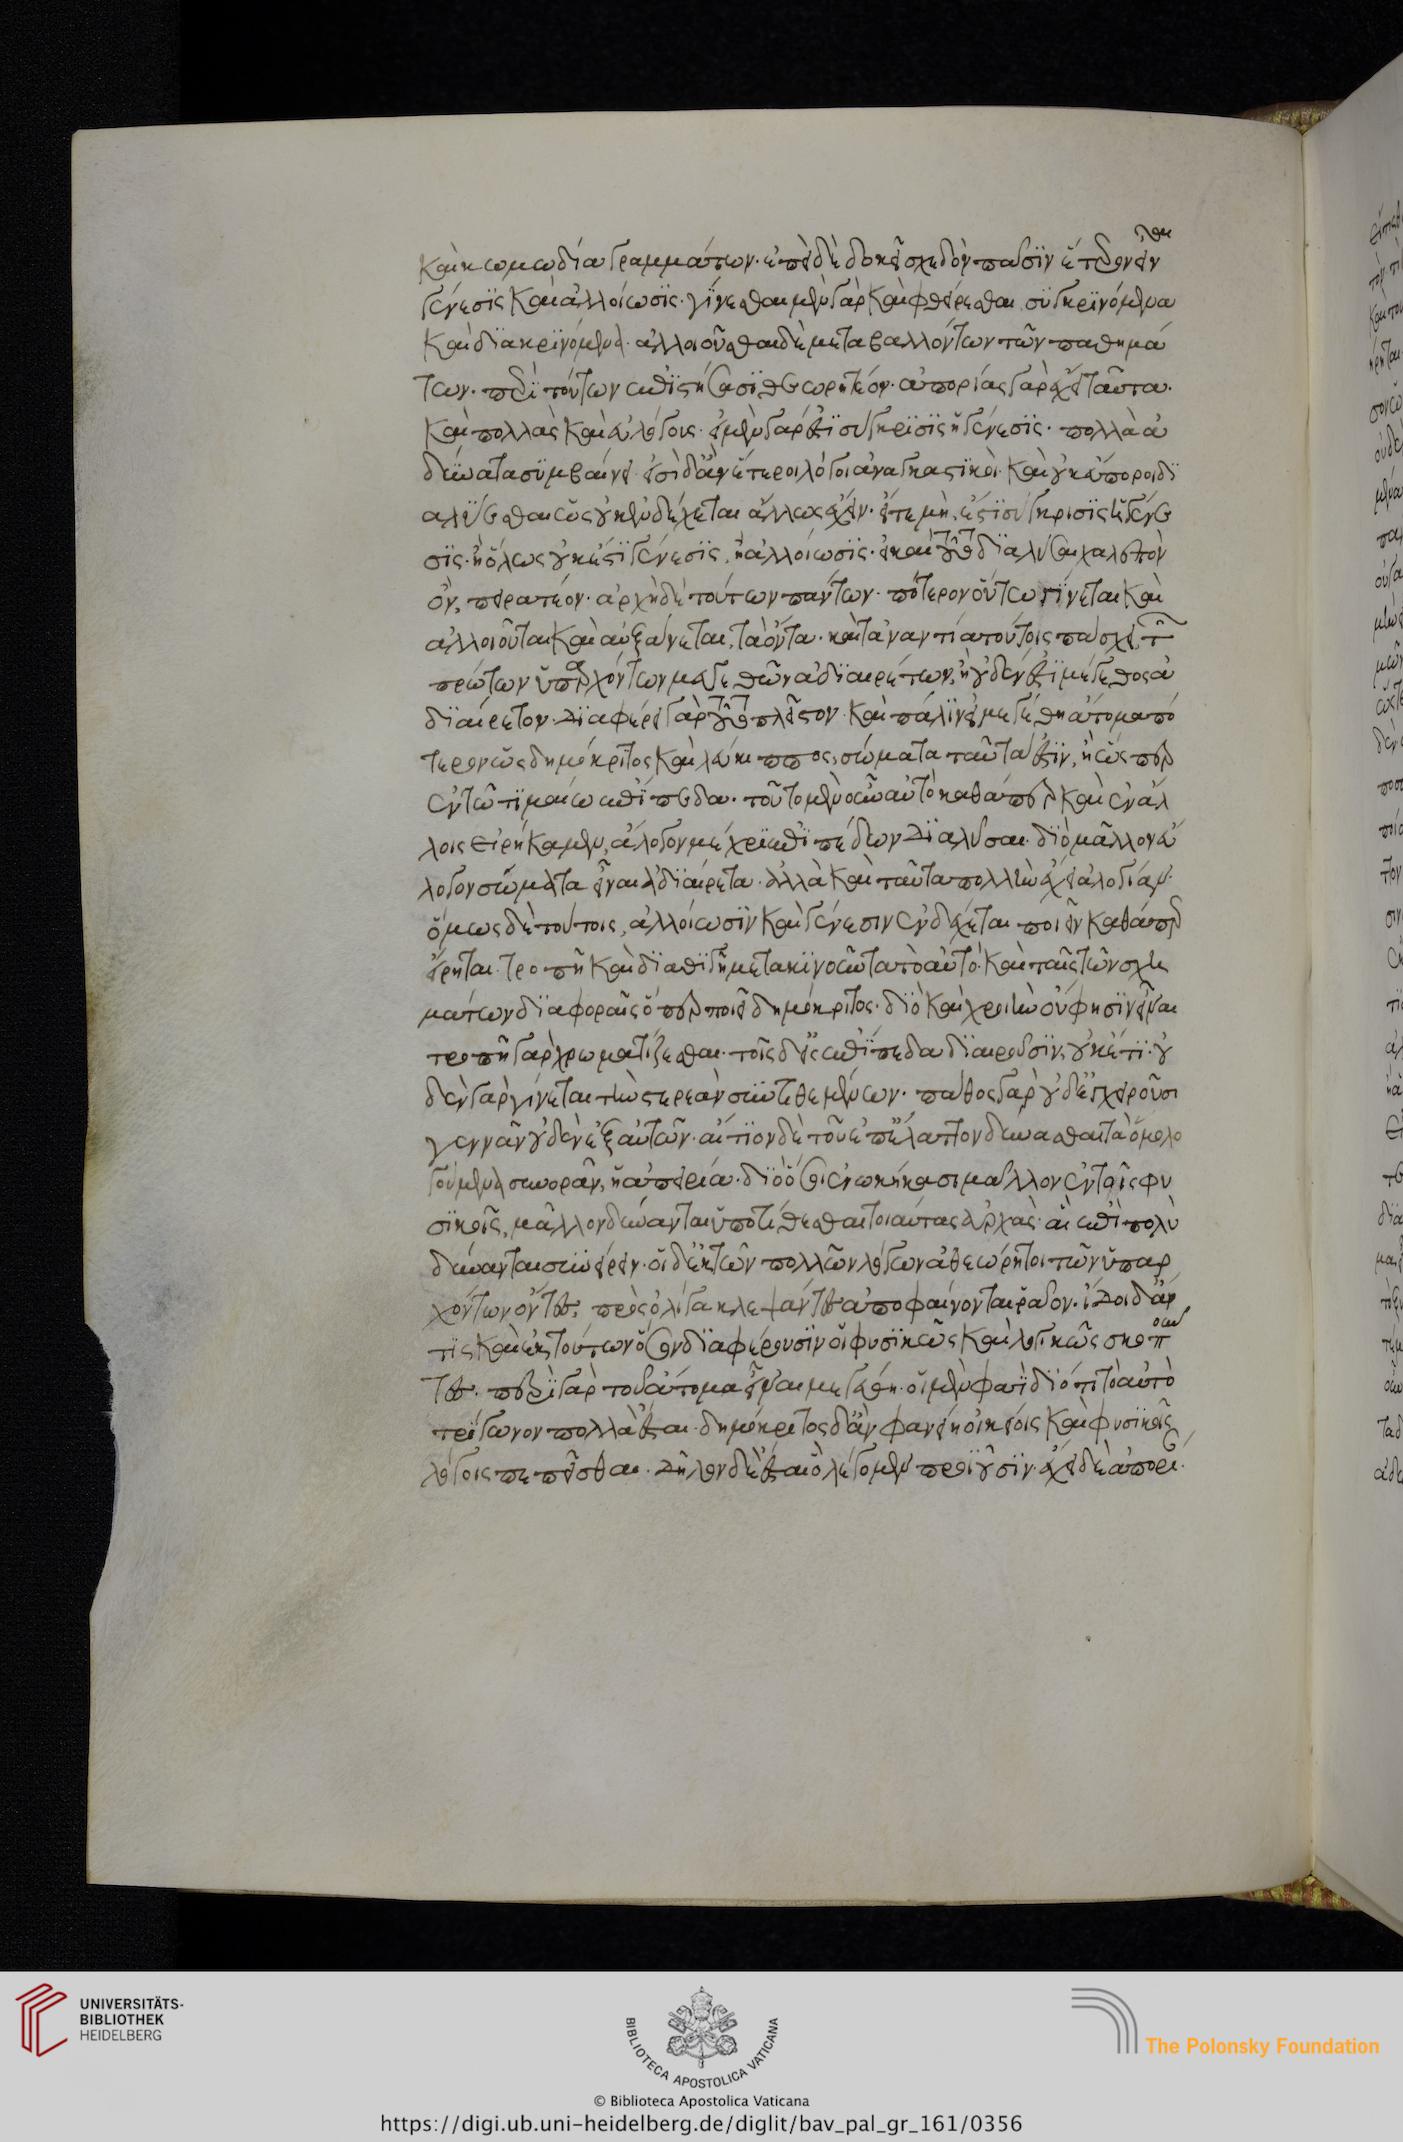 καὶ κωμωδία γραμμάτων· ἐπεὶ δὲ δοκεῖ σχεδὸν πᾶσϊν ἕτερον εἶν(αι)
γένεσϊς καὶ ἀλλοίωσϊς· γίνεσθαι μὲν γὰρ καὶ φθείρεσθαι συγκρϊνόμενα
καὶ δϊακρϊνόμενα· ἀλλοιοῦσθαι δὲ μεταβαλλόντων τῶν παθημά
των· περὶ τούτων ἐπϊστήσασϊ θεωρητέον· ἀπορίας γὰρ ἔχει ταῦτα·
καὶ πολλὰς καὶ εὐλόγους· εἰ μὲν γάρ ἐστϊ σύγκρϊσϊς ἡ γένεσϊς· πολλὰ ἀ
δύνατα συμβαίνει· εἰσὶ δ' ἂν ἕτεροι λόγοι ἀναγκαστϊκοὶ· καὶ οὐκ εὔποροι δϊ
αλύεσθαι ὡς οὐκ ἐνδέχεται ἄλλως ἔχειν· εἴτε μὴ ἐστϊ σύγκρισϊς ἡ γένε
σϊς· ἢ ὅλως οὐκ ἐστϊ γένεσϊς, ἢ ἀλλοίωσϊς· εἰ καὶ τοῦτο δϊαλῦσαι χαλεπὸν
ὂν, πειρατέον· ἀρχὴ δὲ τούτων πάντων· πότερον οὕτω γίνεται καὶ
ἀλλοιοῦται καὶ αὐξάνεται, τὰ ὄντα· καὶ τἀναντία τούτοις πάσχει, τῶν
πρώτων ὑπαρχόντων μεγεθῶν ἀδϊαιρέτων, ἢ οὐδέν ἐστϊ μέγεθος ἀ
δϊαίρετον· δϊαφέρει γὰρ τοῦτο πλεῖστον· καὶ πάλϊν εἰ μεγέθη ἄτομα πό
τερον ὡς δημόκρϊτος καὶ λεύκιππος, σώματα ταῦτ' ἐστϊν, ἢ ὥσπερ
ἐν τῶ τϊμαίω ἐπίπεδα· τοῦτο μὲν οὖν αὐτὸ καθάπερ καὶ ἐν ἄλ
λοις εἰρήκαμεν, ἄλογον μέχρϊ ἐπϊπέδων δϊαλῦσαι· δϊὸ μᾶλλον εὔ
λογον σώματα εἶναι ἀδϊαίρετα· ἀλλὰ καὶ ταῦτα πολλὴν ἔχει ἀλογίαν·
ὅμως δὲ τούτοις, ἀλλοίωσϊν καὶ γένεσιν ἐνδέχεται ποιεῖν καθάπερ
εἴρηται· τροπῆ καὶ δϊαθιγῆ μετακϊνοῦντα τὸ αὐτό· καὶ ταῖς τῶν σχη
μάτων δϊαφοραῖς ὅπερ ποιεῖ δημόκριτος· δϊὸ καὶ χροιὴν οὔ φησϊν εἶναι
τροπῆ γὰρ χρωματίζεσθαι· τοῖς δ' εἰς ἐπίπεδα δϊαιροῦσϊν, οὐκέτϊ· οὐ
δὲν γὰρ γίνεται πλὴν στερεὰν συντϊθεμένων· πάθος γὰρ οὐδ' ἐγχειροῦσι
γεννᾶν οὐδὲν ἐξ αὐτῶν· αἴτϊον δὲ τοῦ ἐπ' ἔλαττον δύνασθαι τὰ ὁμολο
γούμενα συνορᾶν, ἡ ἀπειρία· δϊὸ ὅσοι ἐνωκήκασι μᾶλλον ἐν τοῖς φυ
σϊκοῖς, μᾶλλον δύνανται ὑποτίθεσθαι τοιαύτας ἀρχὰς· αἳ ἐπὶ πολὺ
δύνανται συνείρειν· οἱ δ' ἐκ τῶν πολλῶν λόγων ἀθεώρητοι τῶν ὑπαρ
χόντων ὄντες, πρὸς ὀλίγα βλέψαντες ἀποφαίνονται ῥᾶδον· ἴδοι δ' ἄν
τϊς καὶ ἐκ τούτων ὅσον δϊαφέρουσϊν οἱ φυσϊκῶς καὶ λογϊκῶς σκοποῦν
τες· περὶ γὰρ τοῦ ἄτομα εἶναι μεγέθη· οἱ μὲν φασϊ δϊότι τὸ αὐτὸ
τρίγωνον πολλὰ ἔσται· δημόκριτος δ' ἂν φανείη οἰκείοις καὶ φυσϊκοῖς
λόγοις πεπεῖσθαι· δῆλον δὲ ἔσται ὃ λέγομεν προϊοῦσϊν· ἔχει δὲ ἀπορί
UNIVERSITÄTS-
BIBLIOTHEK
HEIDELBERG
BIBLIOTECA APOSTOLICA VATICANA
The Polonsky Foundation
© Biblioteca Apostolica Vaticana
https://digi.ub.uni-heidelberg.de/diglit/bav_pal_gr_161/0356